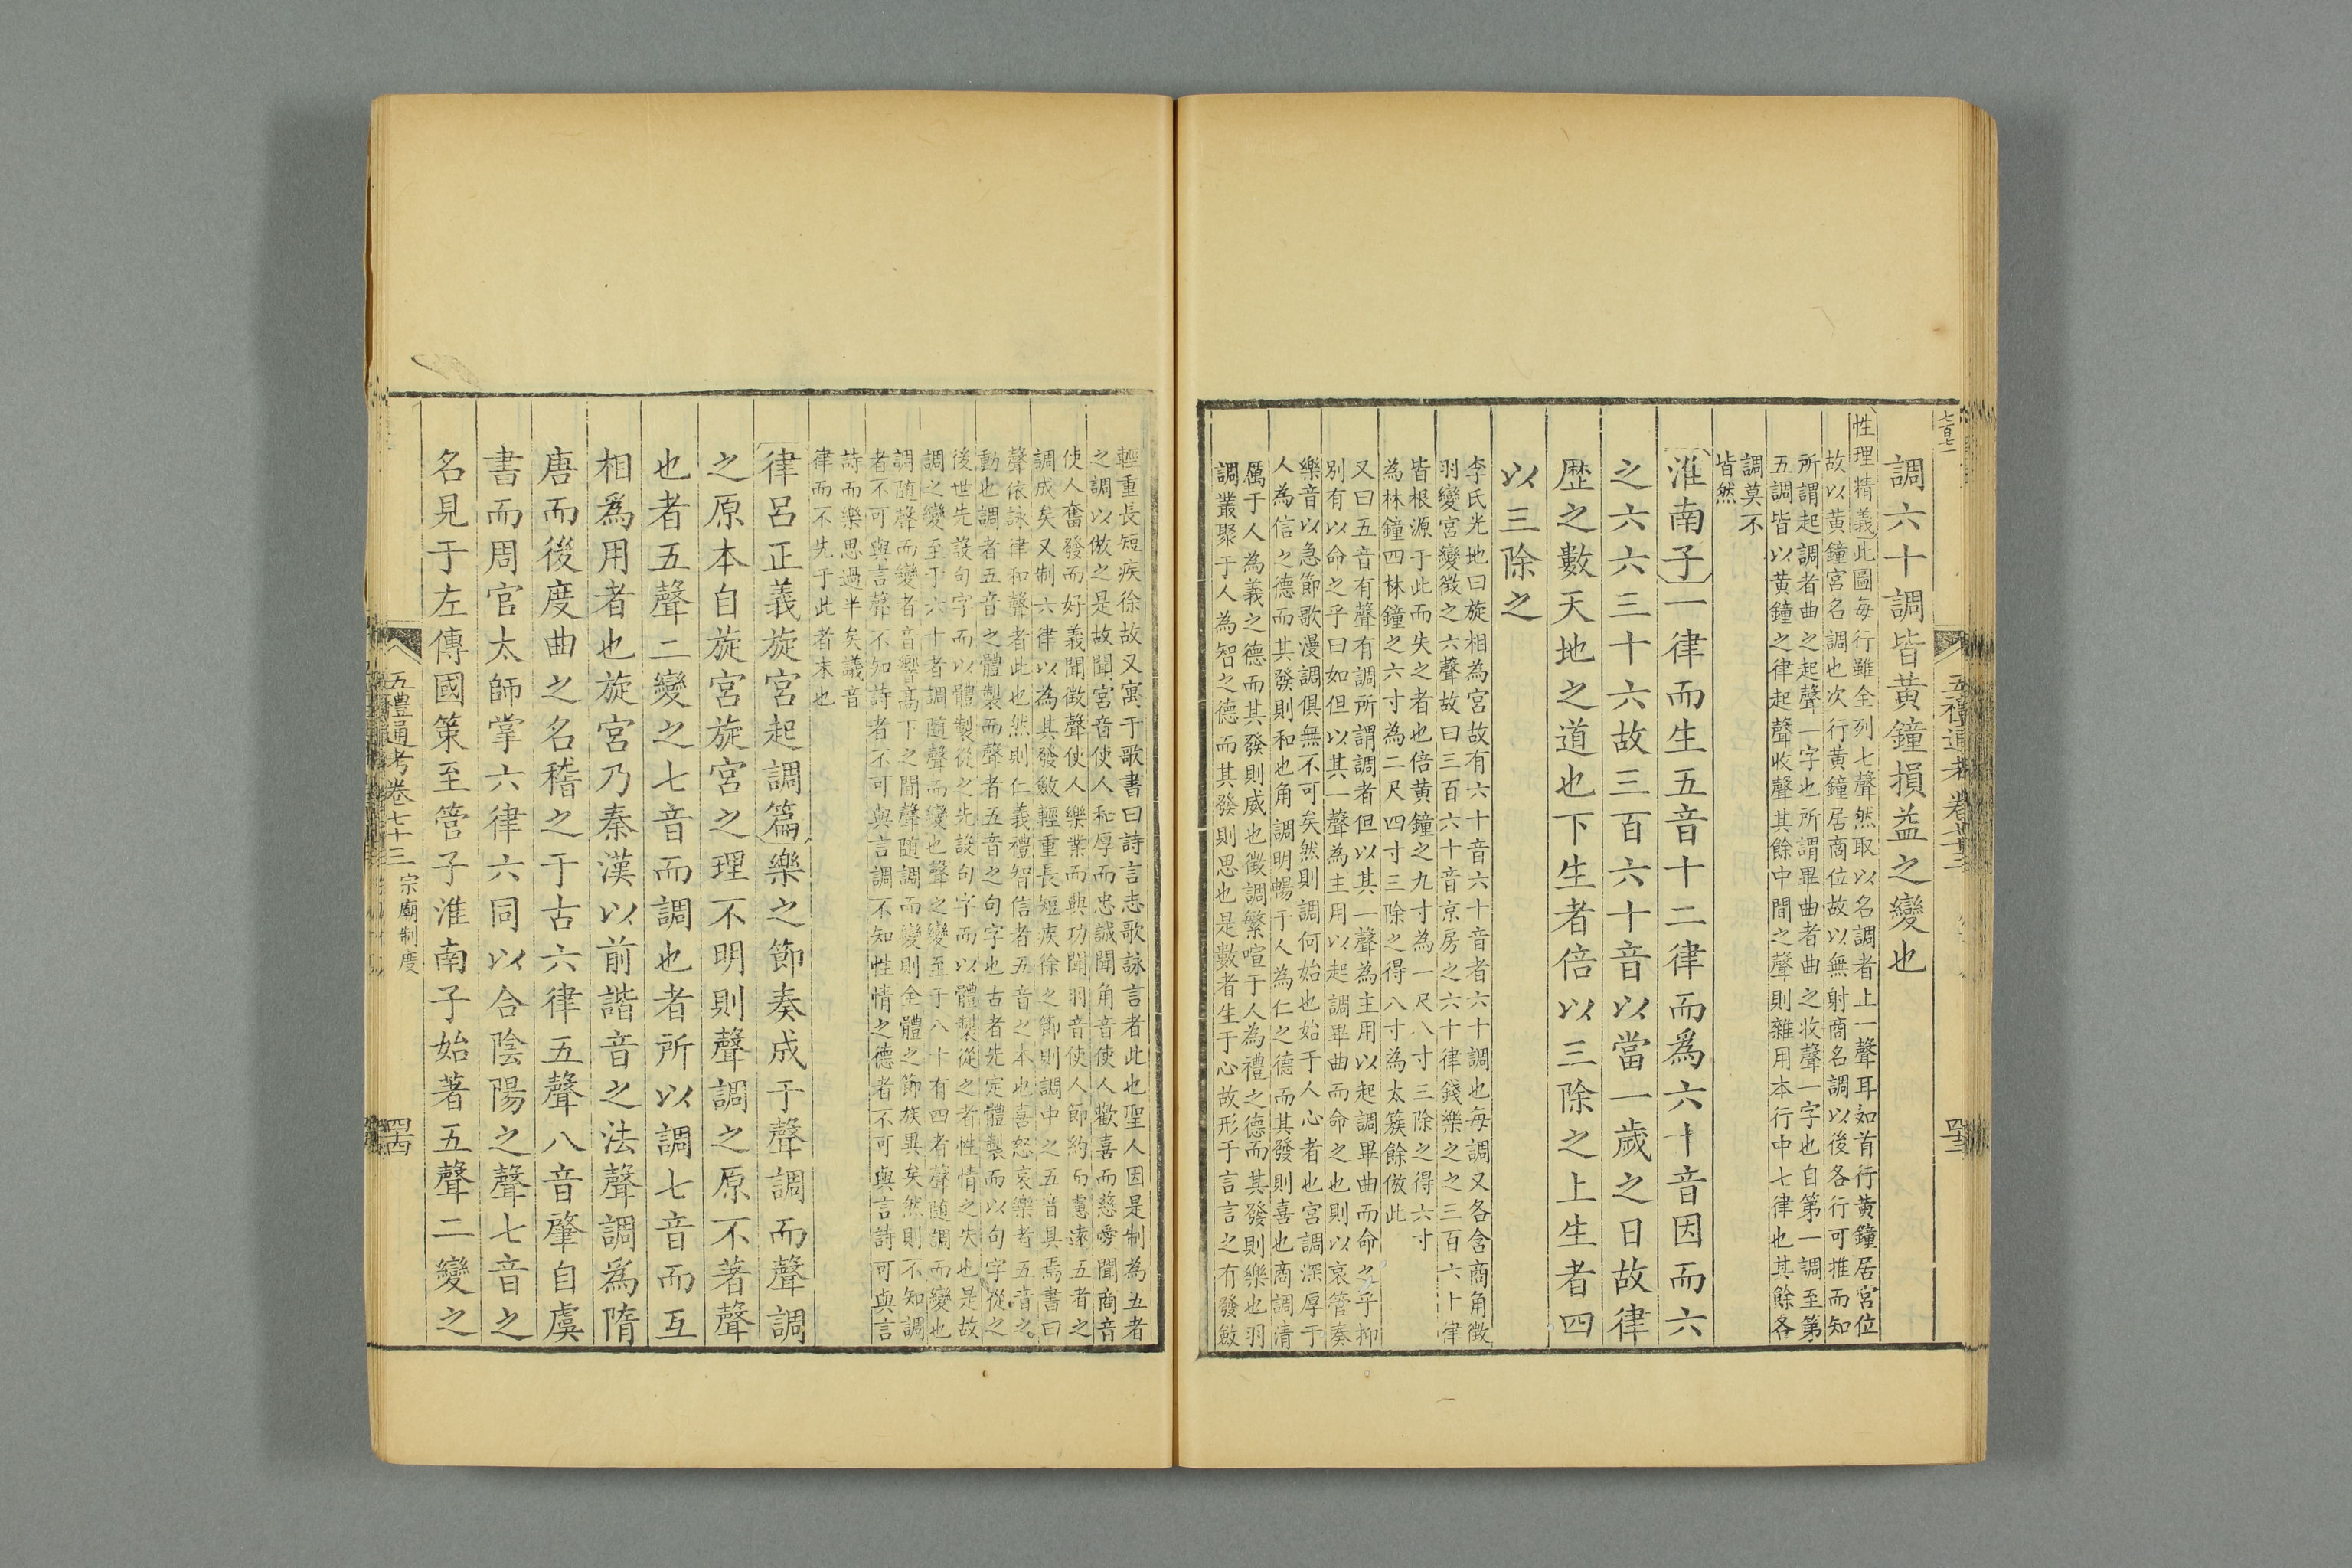 七百七一
五禮通考 卷七十三
調六十調皆黃鐘損益之變也
性理精義此圖每行雖全列七聲然取以名調者止一聲耳如首行黃鐘居宮位
故以黃鐘宮名調也次行黃鐘居商位故以無射商名調以後各行可推而知
所謂起調者曲之起聲一字也所謂畢曲者曲之收聲一字也自第一調至第
五調皆以黃鐘之律起聲收聲其餘中間之聲則雜用本行中七律也其餘各
調莫不
皆然
淮南子一律而生五音十二律而爲六十音因而六
之六六三十六故三百六十音以當一歲之日故律
歴之數天地之道也下生者倍以三除之上生者四
以三除之
李氏光地曰旋相為宮故有六十音六十音者六十調也每調又各含商角徵
羽變宮變徵之六聲故曰三百六十音京房之六十律錢樂之之三百六十律
皆根源于此而失之者也倍黃鐘之九寸為一尺八寸三除之得六寸
為林鐘四林鐘之六寸為二尺四寸三除之得八寸為太簇餘倣此
又曰五音有聲有調所謂調者但以其一聲為主用以起調畢曲而命之乎抑
別有以命之乎曰如但以其一聲為主用以起調畢曲而命之也則以哀管奏
樂音以急節歌漫調俱無不可矣然則調何始也始于人心者也宮調深厚于
人為信之德而其發則和也角調明暢于人為仁之德而其發則喜也商調清
厲于人為義之德而其發則威也徵調繁喧于人為禮之德而其發則樂也羽
調叢聚于人為智之德而其發則思也是數者生于心故形于言言之有發斂
輕重長短疾徐故又寓于歌書曰詩言志歌詠言者此也聖人因是制為五者
之調以倣之是故聞宮音使人和厚而忠誠聞角音使人歡喜而慈愛聞商音
使人奮發而好義聞徵聲使人樂業而興功聞羽音使人節約而慮遠五者之
調成矣又制六律以為其發斂輕重長短疾徐之節則調中之五音具焉書曰
聲依詠律和聲者此也然則仁義禮智信者五音之本也喜怒哀樂者五音之
動也調者五音之體製而聲者五音之句字也古者先定體製而以句字從之
後世先設句字而以體製從之先設句字而以體製從之者性情之失也是故
調之變至于六十者調隨聲而變也聲之變至于八十有四者聲隨調而變也
調随聲而變者音響高下之間聲随調而變則全體之節族異矣然則不知調
者不可與言聲不知詩者不可與言調不知性情之德者不可與言詩可與言
詩而樂思過半矣議音
律而不先于此者末也
律呂正義旋宮起調篇樂之節奏成于聲調而聲調
之原本自旋宮旋宮之理不明則聲調之原不著聲
也者五聲二變之七音而調也者所以調七音而互
相爲用者也旋宮乃秦漢以前諧音之法聲調爲隋
唐而後度曲之名稽之于古六律五聲八音肇自虞
書而周官太師掌六律六同以合陰陽之聲七音之
名見于左傳國策至管子淮南子始著五聲二變之
五禮通考卷七十三 宗廟制度
四十四